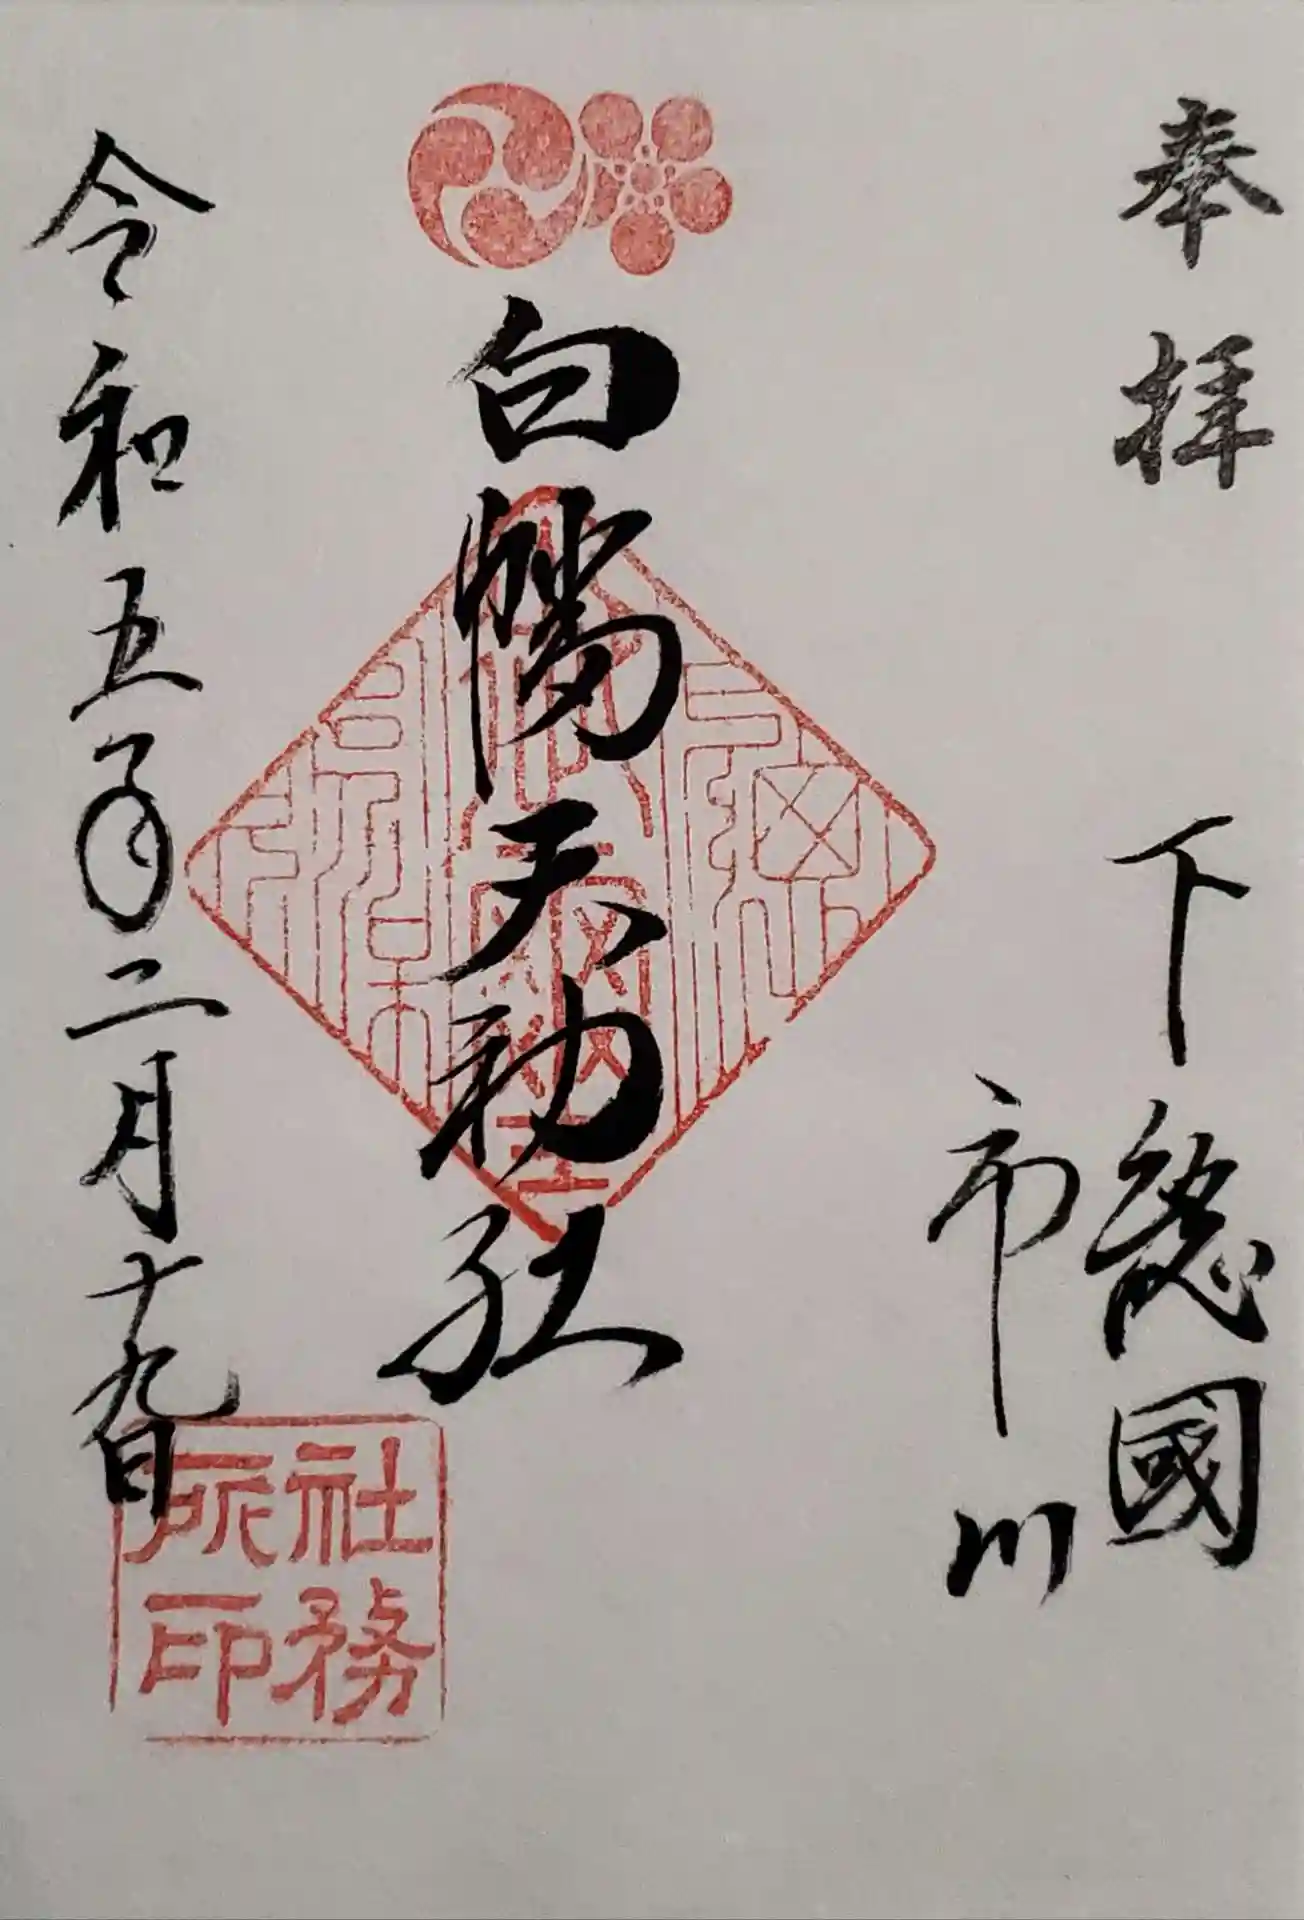 奉拝
下総國
市川
白幡天神社
令和五年二月十九日
社務所印